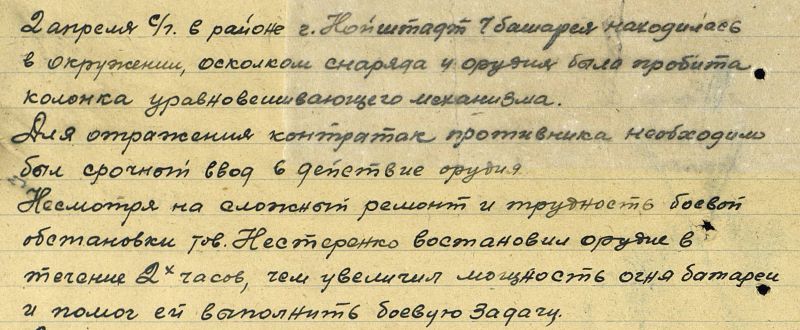 2 апреля с/г. в районе г. Нойштадт 4 башарея находилась
в окружении, осколком снаряда у орудия была пробита
колонка уравновешивающего механизма.
Для отражения контратак противника необходимо
был срочный ввод в действие орудия
Несмотря на сложный ремонт и трудность боевой
обстановки тов. Нестеренко востановил орудие в
течение 2х часов, чем увеличил мощность огня батареи
и помог ей выполнить боевую задачу.